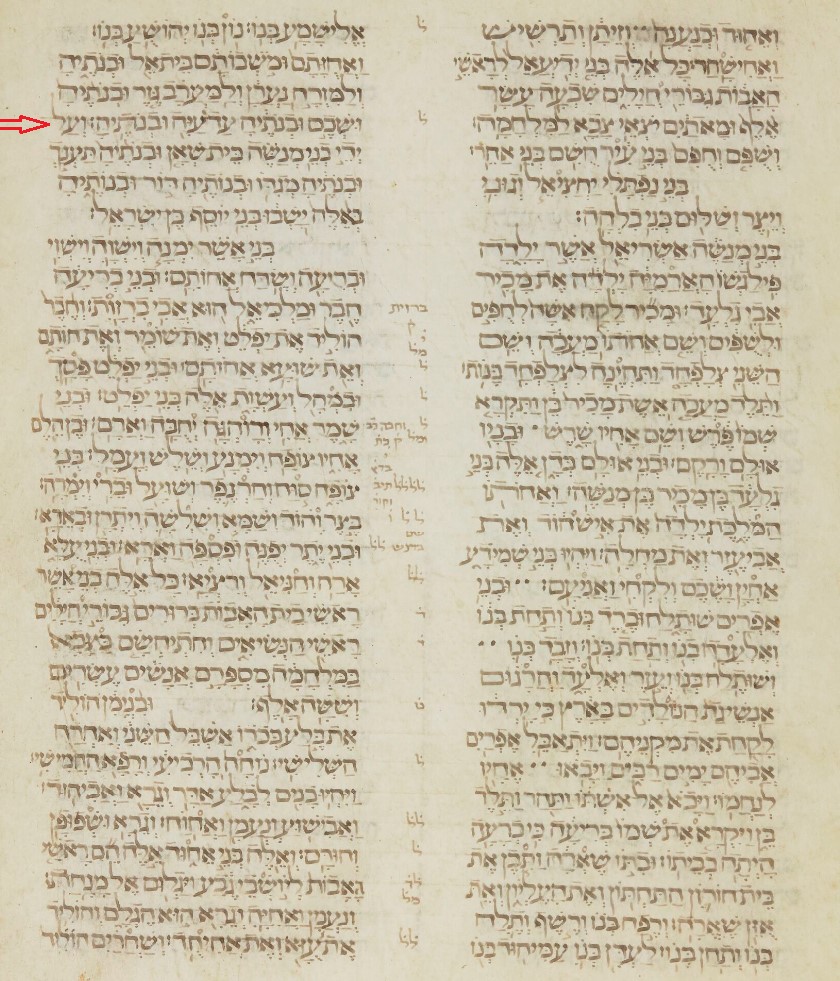 ואהוד וכנענה וזיתן ותרשיש
ואחישחר כל אלה בני ידיעאל לראשי
האבות גבורי חילים שבעה עשר
אלף ומאתים יצאי צבא למלחמה׃
ושפם וחפם בני עיר חשם בני אחר׃
בני נפתלי יחציאל וגוני
ויצר ושלום בני בלהה׃
בני מנשה אשריאל אשר ילדה
פילגשו הארמיה ילדה את מכיר
אבי גלעד׃ ומכיר לקח אשה לחפים
ולשפים ושם אחותו מעכה ושם
השני צלפחד ותהינה לצלפחד בנות׃
ותלד מעכה אשת מכיר בן ותקרא
שמו פרש ושם אחיו שרש ובניו
אולם ורקם׃ ובני אולם בדן אלה בני
גלעד בן מכיר בן מנשה׃ ואחותו
המלכת ילדה את אישהוד ואת
אביעזר ואת מחלה׃ ויהיו בני שמידע
אחין ושכם ולקחי ואניעם׃ ובני
אפרים שותלח וברד בנו ותחת בנו
ואלעדה בנו ותחת בנו׃ וזבד בנו
ושותלח בנו ועזר ואלעד והרגום
אנשי גת הנולדים בארץ כי ירדו
לקחת את מקניהם׃ ויתאבל אפרים
אביהם ימים רבים ויבאו אחיו
לנחמו׃ ויבא אל אשתו ותהר ותלד
בן ויקרא את שמו בריעה כי ברעה
היתה בביתו׃ ובתו שארה ותבן את
בית חורון התחתון ואת העליון ואת
אזן שארה׃ ורפח בנו ורשף ותלח
בנו ותחן בנו׃ לעדן בנו עמיהוד בנו
אלישמע בנו׃ נון בנו יהושע בנו׃
ואחזתם ומשבותם בית אל ובנתיה
ולמזרח נערן ולמערב גזר ובנתיה
ושכם ובנתיה עד עיה ובנתיה׃ ועל
ידי בני מנשה בית שאן ובנתיה תענך
ובנתיה מגדו ובנותיה דור ובנותיה
באלה ישבו בני יוסף בן ישראל׃
בני אשר ימנה וישוה וישוי
ובריעה ושרח אחותם׃ ובני בריעה
חבר ומלכיאל הוא אבי ברזות׃ וחבר
הוליד את יפלט ואת שומר ואת חותם
ואת שועא אחותם׃ ובני יפלט פסך
ובמהל ועשות אלה בני יפלט׃ ובני
שמר אחי ורוהגה יחבה וארם׃ ובן הלם
אחיו צופח וימנע ושלש ועמל׃ בני
צופח סוח וחרנפר ושועל וברי וימרה׃
בצר והוד ושמא ושלשה ויתרן ובארא׃
ובני יתר יפנה ופספה וארא׃ ובני עלא
ארח וחניאל ורציא׃ כל אלה בני אשר
ראשי בית האבות ברורים גבורי חילים
ראשי הנשיאים והתיחשם בצבא
במלחמה מספרם אנשים עשרים
וששה אלף׃ ובנימן הוליד
את בלע בכרו אשבל השני ואחרח
השלישי׃ נוחה הרביעי ורפא החמישי׃
ויהיו בנים לבלע אדר וגרא ואביהוד׃
ואבישוע ונעמן ואחוח׃ וגרא ושפופן
וחורם׃ ואלה בני אחוד אלה הם ראשי
אבות ליושבי גבע ויגלום אל מנחת׃
ונעמן ואחיה וגרא הוא הגלם והוליד
את עזא ואת אחיחד׃ ושחרים הוליד